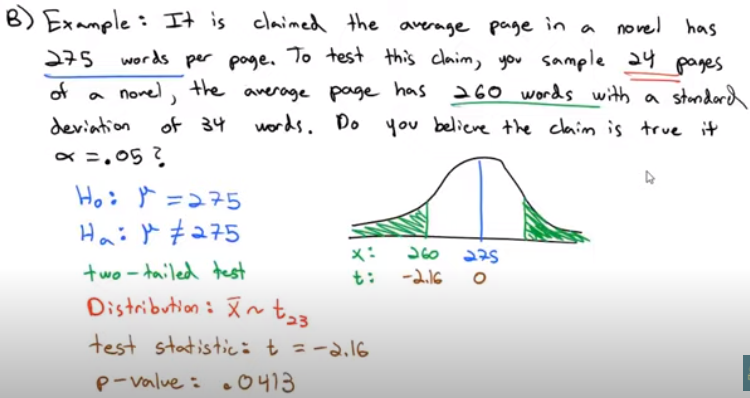 B) Example: It is claimed the average page in a novel has
275 words per page. To test this claim, you sample 24 pages
of a novel, the average page has 260 words with a standard
deviation of 34 words. Do you believe the claim is true if
α = .05?
H₀: μ = 275
Hₐ: μ ≠ 275
two-tailed test
x: 260 275
t: -2.16 0
Distribution: x̄ ~ t₂₃
test statistic: t = -2.16
p-value: .0413